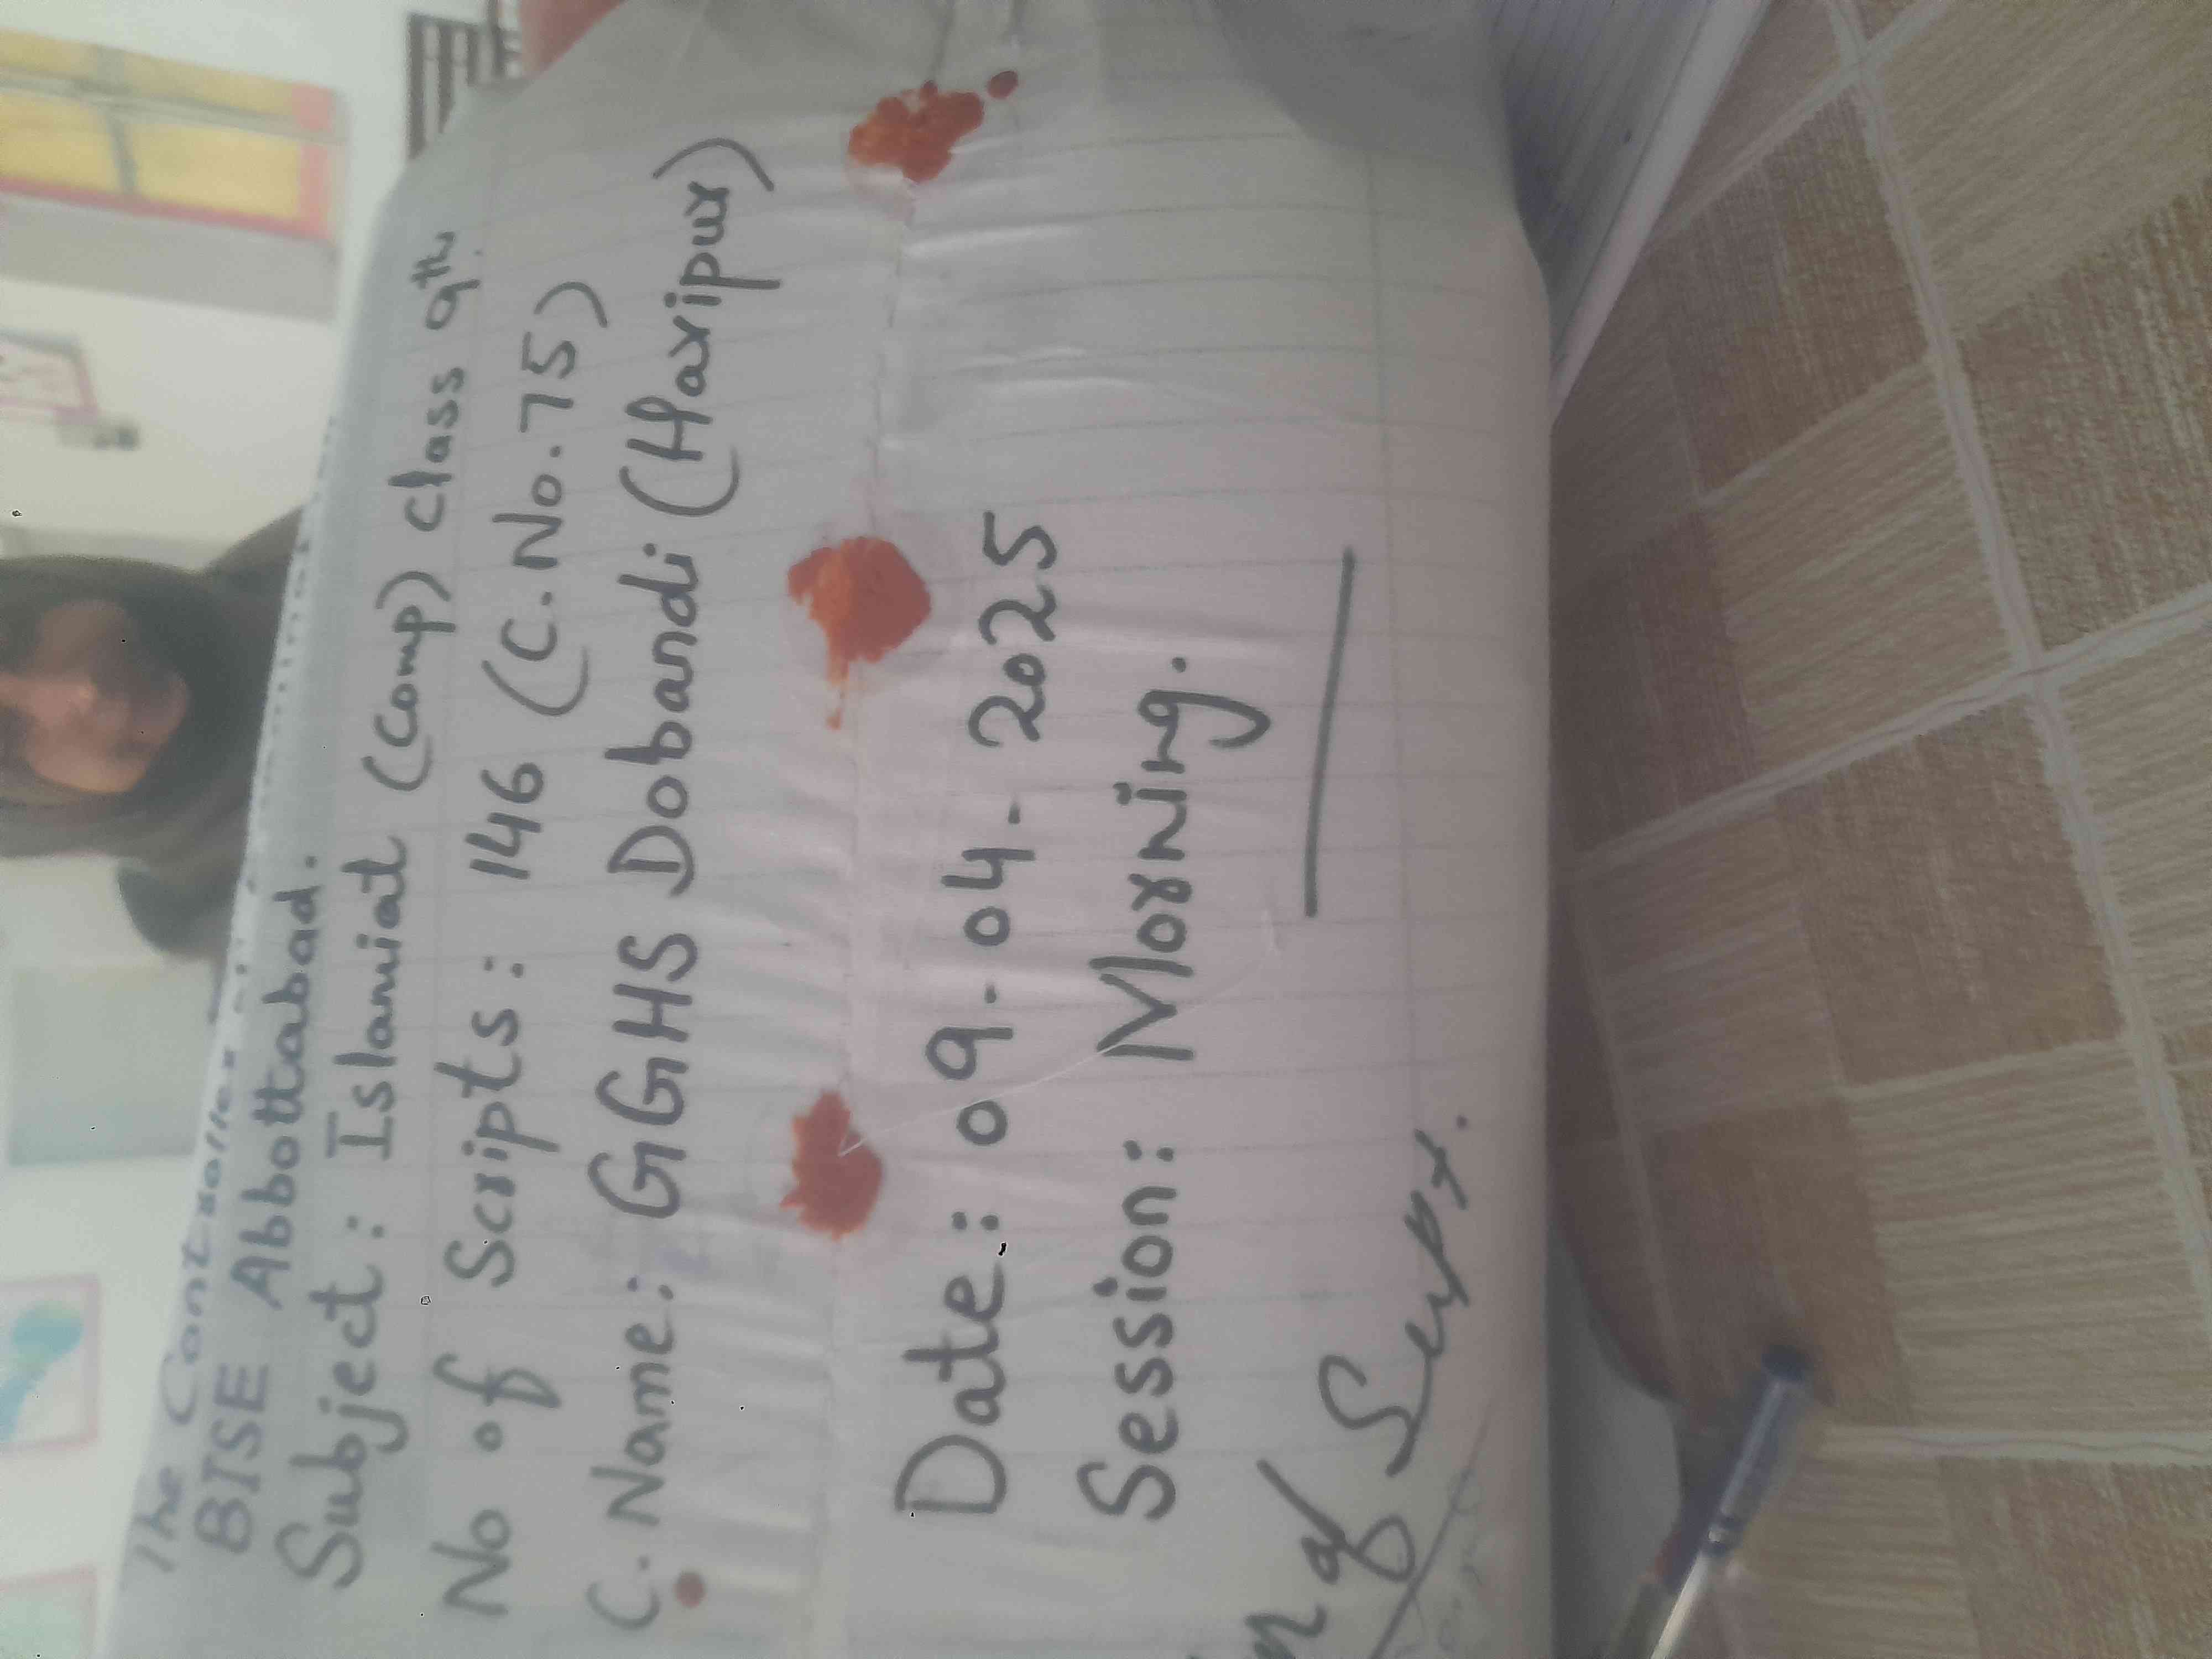 The Controller
BISE Abbottabad.
Subject: Islamiat (Comp) class 9th.
No of Scripts: 146 (C.No.75)
C. Name: GGHS Dobandi (Haripur)
Date: 09-04-2025
Session: Morning.
of Supt.